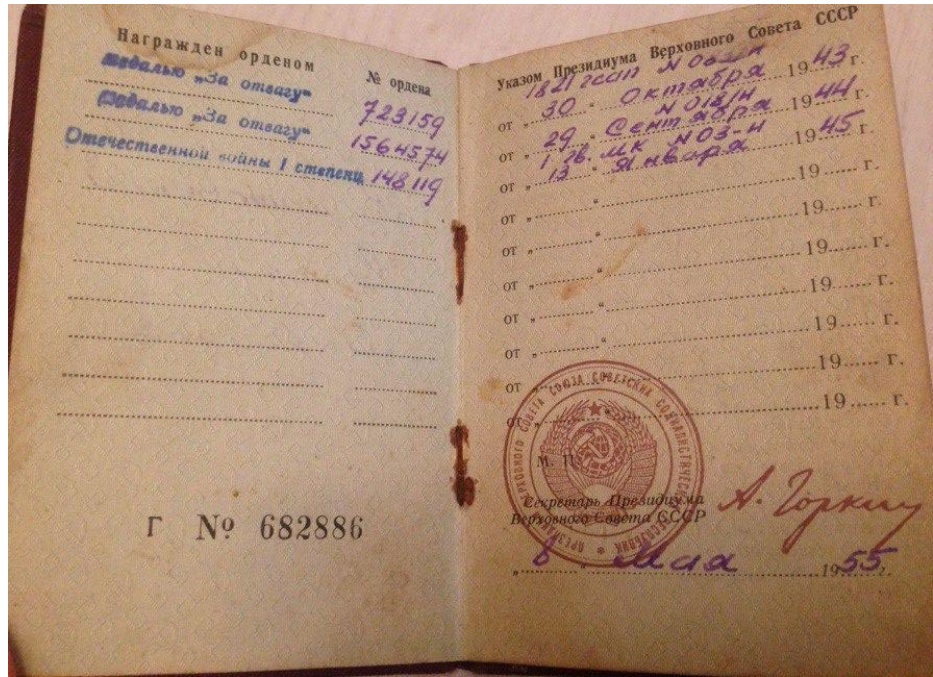 Награжден орденом
№ ордена
Медалью „За отвагу“
723159
Медалью „За отвагу“
1564574
Отечественной войны I степени 148119
Г № 682886
Указом Президиума Верховного Совета СССР
1821 гсап N
от „ 30 “ Октября 1943 г.
от „ 29 “ Сентября 1944 г.
1 гв. МК N 03-н
от „ 13 “ Января 1945 г.
от „ “ 19 г.
от „ “ 19 г.
от „ “ 19 г.
от „ “ 19 г.
от „ “ 19 г.
от „ “ 19 г.
от „ “ 19 г.
ПРЕЗИДИУМ ВЕРХОВНОГО СОВЕТА СОЮЗА СОВЕТСКИХ СОЦИАЛИСТИЧЕСКИХ РЕСПУБЛИК
М. П.
Секретарь Президиума
Верховного Совета СССР
А. Горкин
„ 6 “ Мая 1955 г.